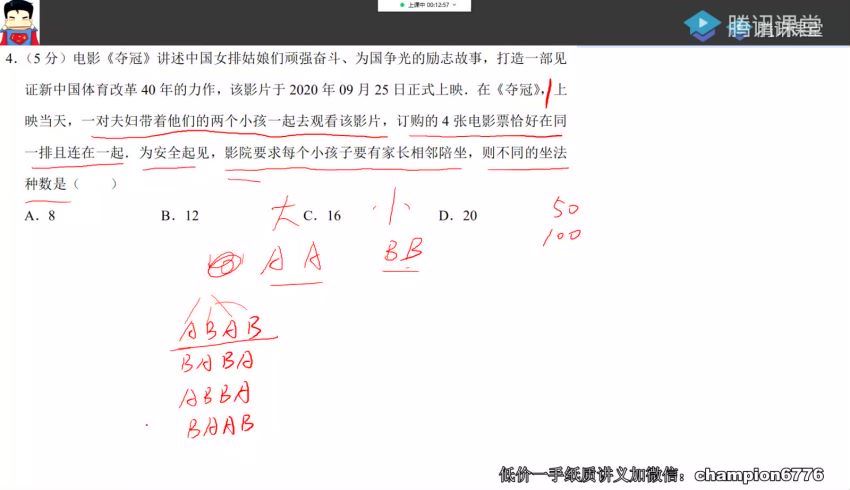 上课中 00:12:57
腾讯课堂
腾讯课堂
4.（5 分）电影《夺冠》讲述中国女排姑娘们顽强奋斗、为国争光的励志故事，打造一部见
证新中国体育改革 40 年的力作，该影片于 2020 年 09 月 25 日正式上映．在《夺冠》，上
映当天，一对夫妇带着他们的两个小孩一起去观看该影片，订购的 4 张电影票恰好在同
一排且连在一起．为安全起见，影院要求每个小孩子要有家长相邻陪坐，则不同的坐法
种数是（  ）
A．8 B．12 C．16 D．20
大 小 50
100
A A BB
ABAB
BABA
ABBA
BAAB
低价一手纸质讲义加微信：champion6776